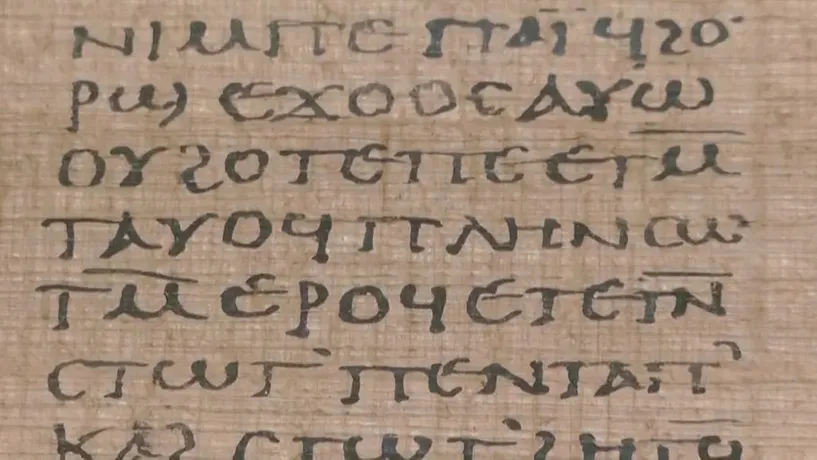 ⲛⲓⲙⲡⲉ ⲡⲁⲓ̈ ϥϩⲟ
ⲣϣ ⲉⲭⲟⲟⲥ ⲁⲩⲱ
ⲟⲩϩⲟⲧⲉⲡⲉ ⲉⲧⲙ̅
ⲧⲁⲩⲟϥ ⲡⲗⲏⲛ ⲥⲱ
ⲧⲙ̅ ⲉⲣⲟϥ ⲉⲧⲉⲧⲛ̅
ⲥⲧⲱⲧ ⲡⲉⲛⲧⲁⲡ
ⲕⲁϩ ⲥⲧⲱⲧ ϩⲏⲧϥ̅